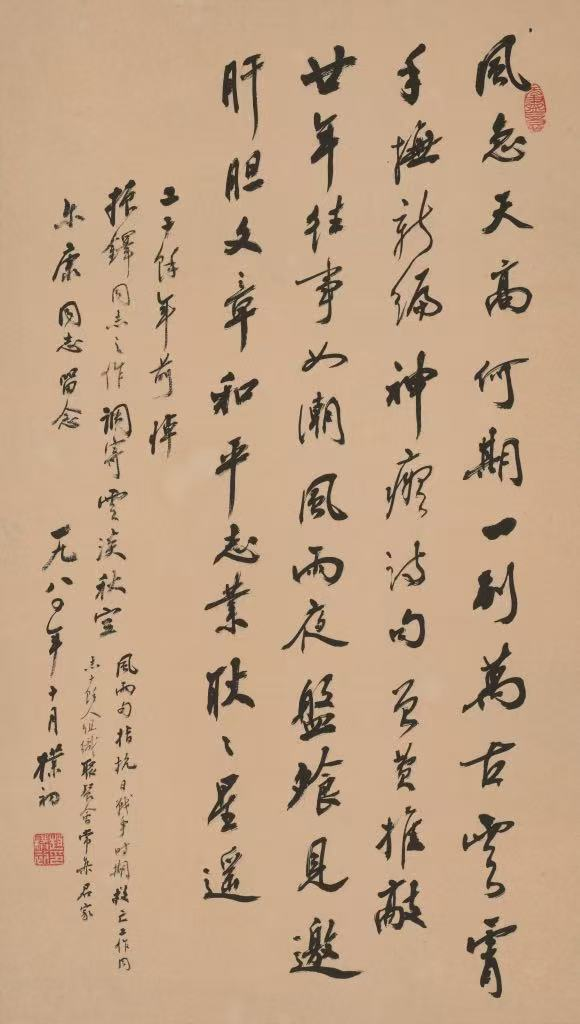 風急天高何期一別萬古雲霄
手撫新编神癡詩句曾費推敲
廿年往事如潮風雨夜盤飱見邀
肝胆文章和平志業耿〻星遥
二十餘年前悼
振鐸同志之作調寄雲淡秋空
尔康同志留念
一九八〇年十月樸初
風雨句指抗日戰争时期救亡工作同
志十餘人组織聚餐会常集君家